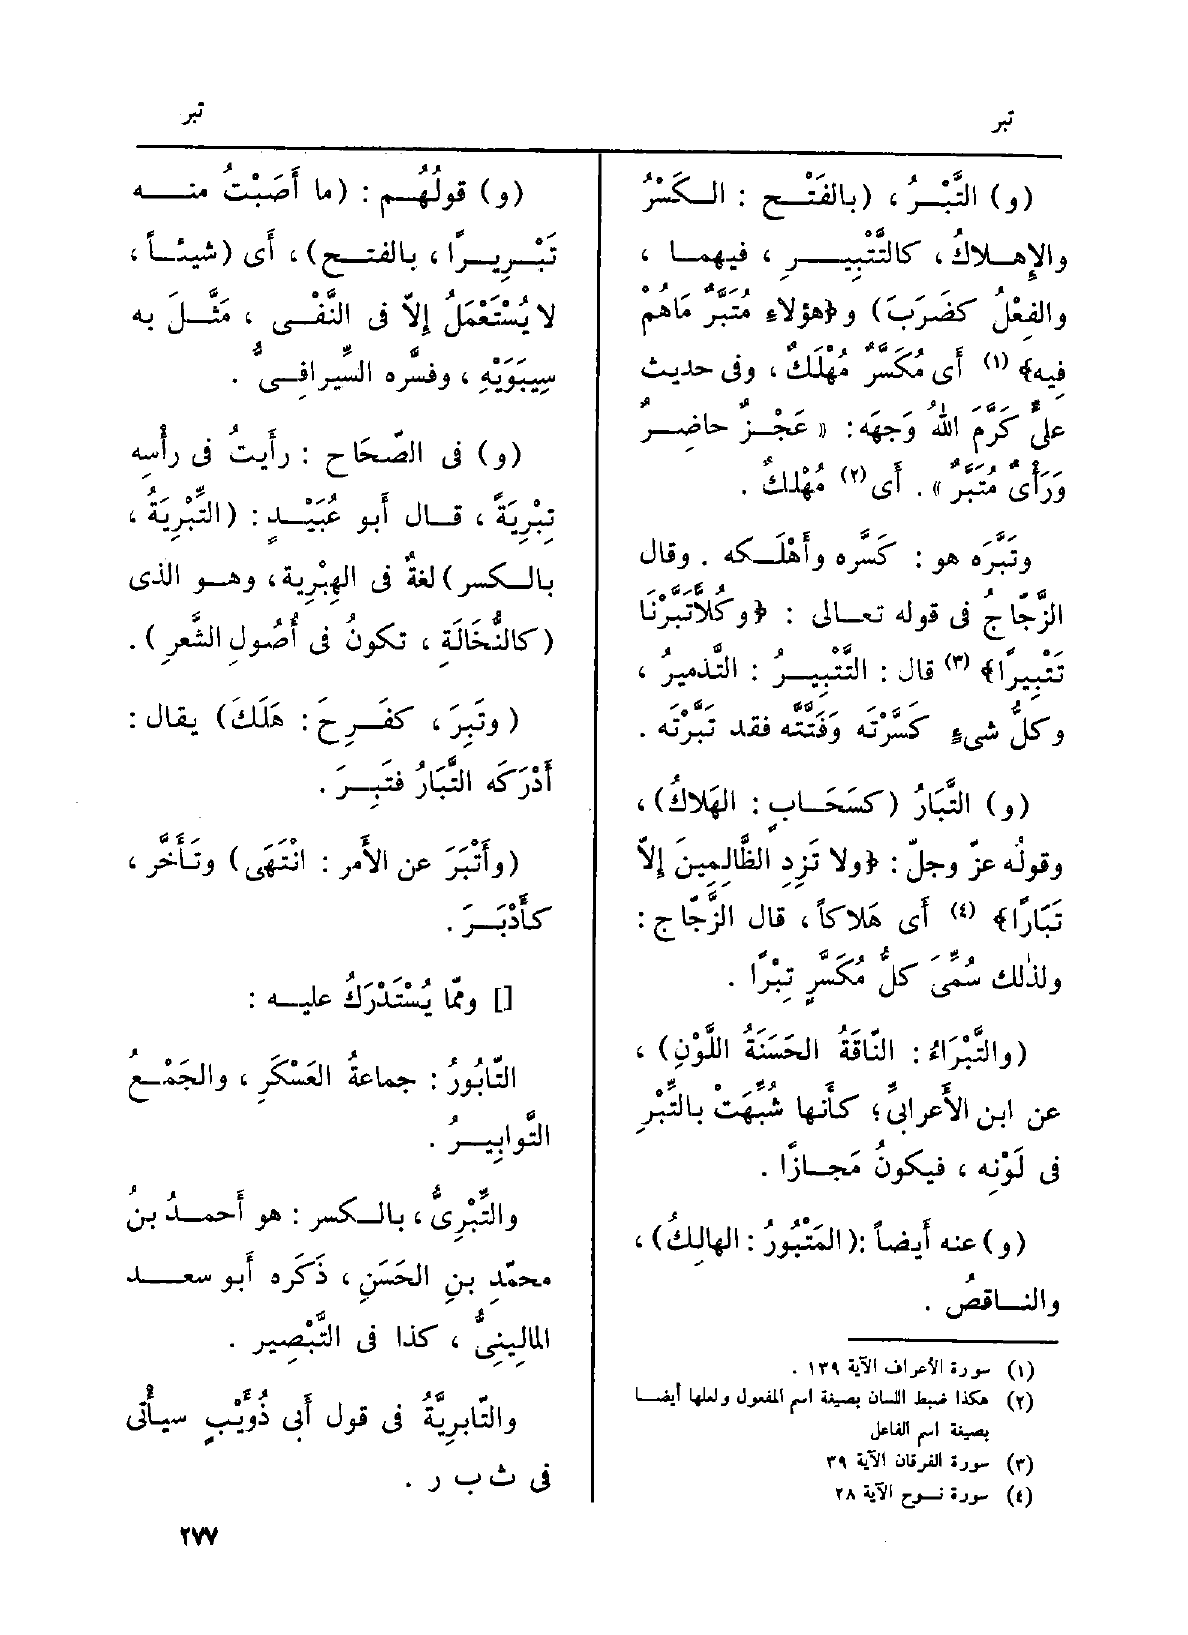 تبر
تبر
(و) التَّبْـرُ ، (بالفَتْـح : الـكَسْرُ
والإِهْـلاكُ ، كالتَّتْبِيـرِ ، فيهمـا ،
والفِعْلُ كضَرَبَ) و﴿هؤلاءِ مُتَبَّرٌ مَاهُم
فِيهِ﴾ (١) أَى مُكَسَّرٌ مُهْلَكٌ ، وفى حديث
علىٍّ كَرَّمَ اللهُ وَجهَه: « عَجْـزٌ حاضِـرٌ
وَرَأْىٌ مُتَبَّرٌ » . أَى (٢) مُهْلَكٌ .
وتَبَّرَه هو : كَسَّره وأَهْلَـكه . وقال
الزَّجّاجُ فى قوله تعـالى : ﴿وكُلاًّتَبَّرْنَا
تَتْبِيرًا﴾ (٣) قال : التَّتْبِيـرُ : التَّدْمِيرُ ،
وكلُّ شىءٍ كَسَّرْتَه وَفَتَّتَّه فقد تَبَّرْتَه .
(و) التَّبَارُ (كسَحَـابٍ : الهَلاكُ) ،
وقولُه عزّ وجلّ : ﴿ولا تَزِدِ الظَّالِمِينَ إِلاَّ
تَبَارًا﴾ (٤) أَى هَلاكاً ، قال الزَّجّاج :
ولذٰلك سُمِّىَ كلُّ مُكَسَّرٍ تِبْرًا .
(والتَّبْرَاءُ : النَّاقَةُ الحَسَنَةُ اللَّوْنِ) ،
عن ابن الأَعرابىِّ؛ كأَنها شُبِّهَتْ بالتِّبْرِ
فى لَوْنِه ، فيكونُ مَجـازًا .
(و) عنه أَيضاً :(المَتْبُورُ : الهالِكُ) ،
والنـاقصُ .
(١) سورة الأعراف الآية ١٣٩ .
(٢) هكذا ضبط اللسان بصيغة اسم المفعول ولعلها أيضـا
بصيغة اسم الفاعل
(٣) سورة الفرقان الآية ٣٩
(٤) سورة نـوح الآية ٢٨
(و) قولُهُـم : (ما أَصَبْتُ منـه
تَبْـرِيـرًا ، بالفتـح) ، أَى (شيئـاً ،
لا يُسْتَعْمَلُ إِلاّ فى النَّفْـى ، مَثَّـلَ به
سِيبَوَيْهِ ، وفسَّره السِّيرافِـىُّ .
(و) فى الصّحَاح : رأَيتُ فى رأْسِه
تِبْرِيَةً ، قـال أَبو عُبَيْـدٍ : (التِّبْرِيَةُ ،
بالـكسر) لغةٌ فى الهِبْرِية، وهـو الذى
(كالنُّخَالَةِ ، تكونُ فى أُصُولِ الشَّعرِ ) .
( وتَبِرَ ، كفَـرِحَ : هَلَكَ) يقال :
أَدْرَكَه التَّبَارُ فتَبِـرَ .
(وأَتْبَرَ عن الأَمر : انْتَهَى) وتَأَخَّر ،
كأَدْبَـرَ .
[] وممّا يُسْتَدْرَكُ عليـه :
التّابُورُ : جماعةُ العَسْكَرِ ، والجَمْـعُ
التَّوابِيـرُ .
والتِّبْرِىُّ ، بالـكسر : هو أَحمـدُ بنُ
محمّدِ بنِ الحَسَنِ ، ذَكَره أَبو سعـد
المالِينِىُّ ، كذا فى التَّبْصِير .
والتّابرِيَّةُ فى قول أَبى ذُؤَيْبٍ سيأْتى
فى ث ب ر .
٢٧٧